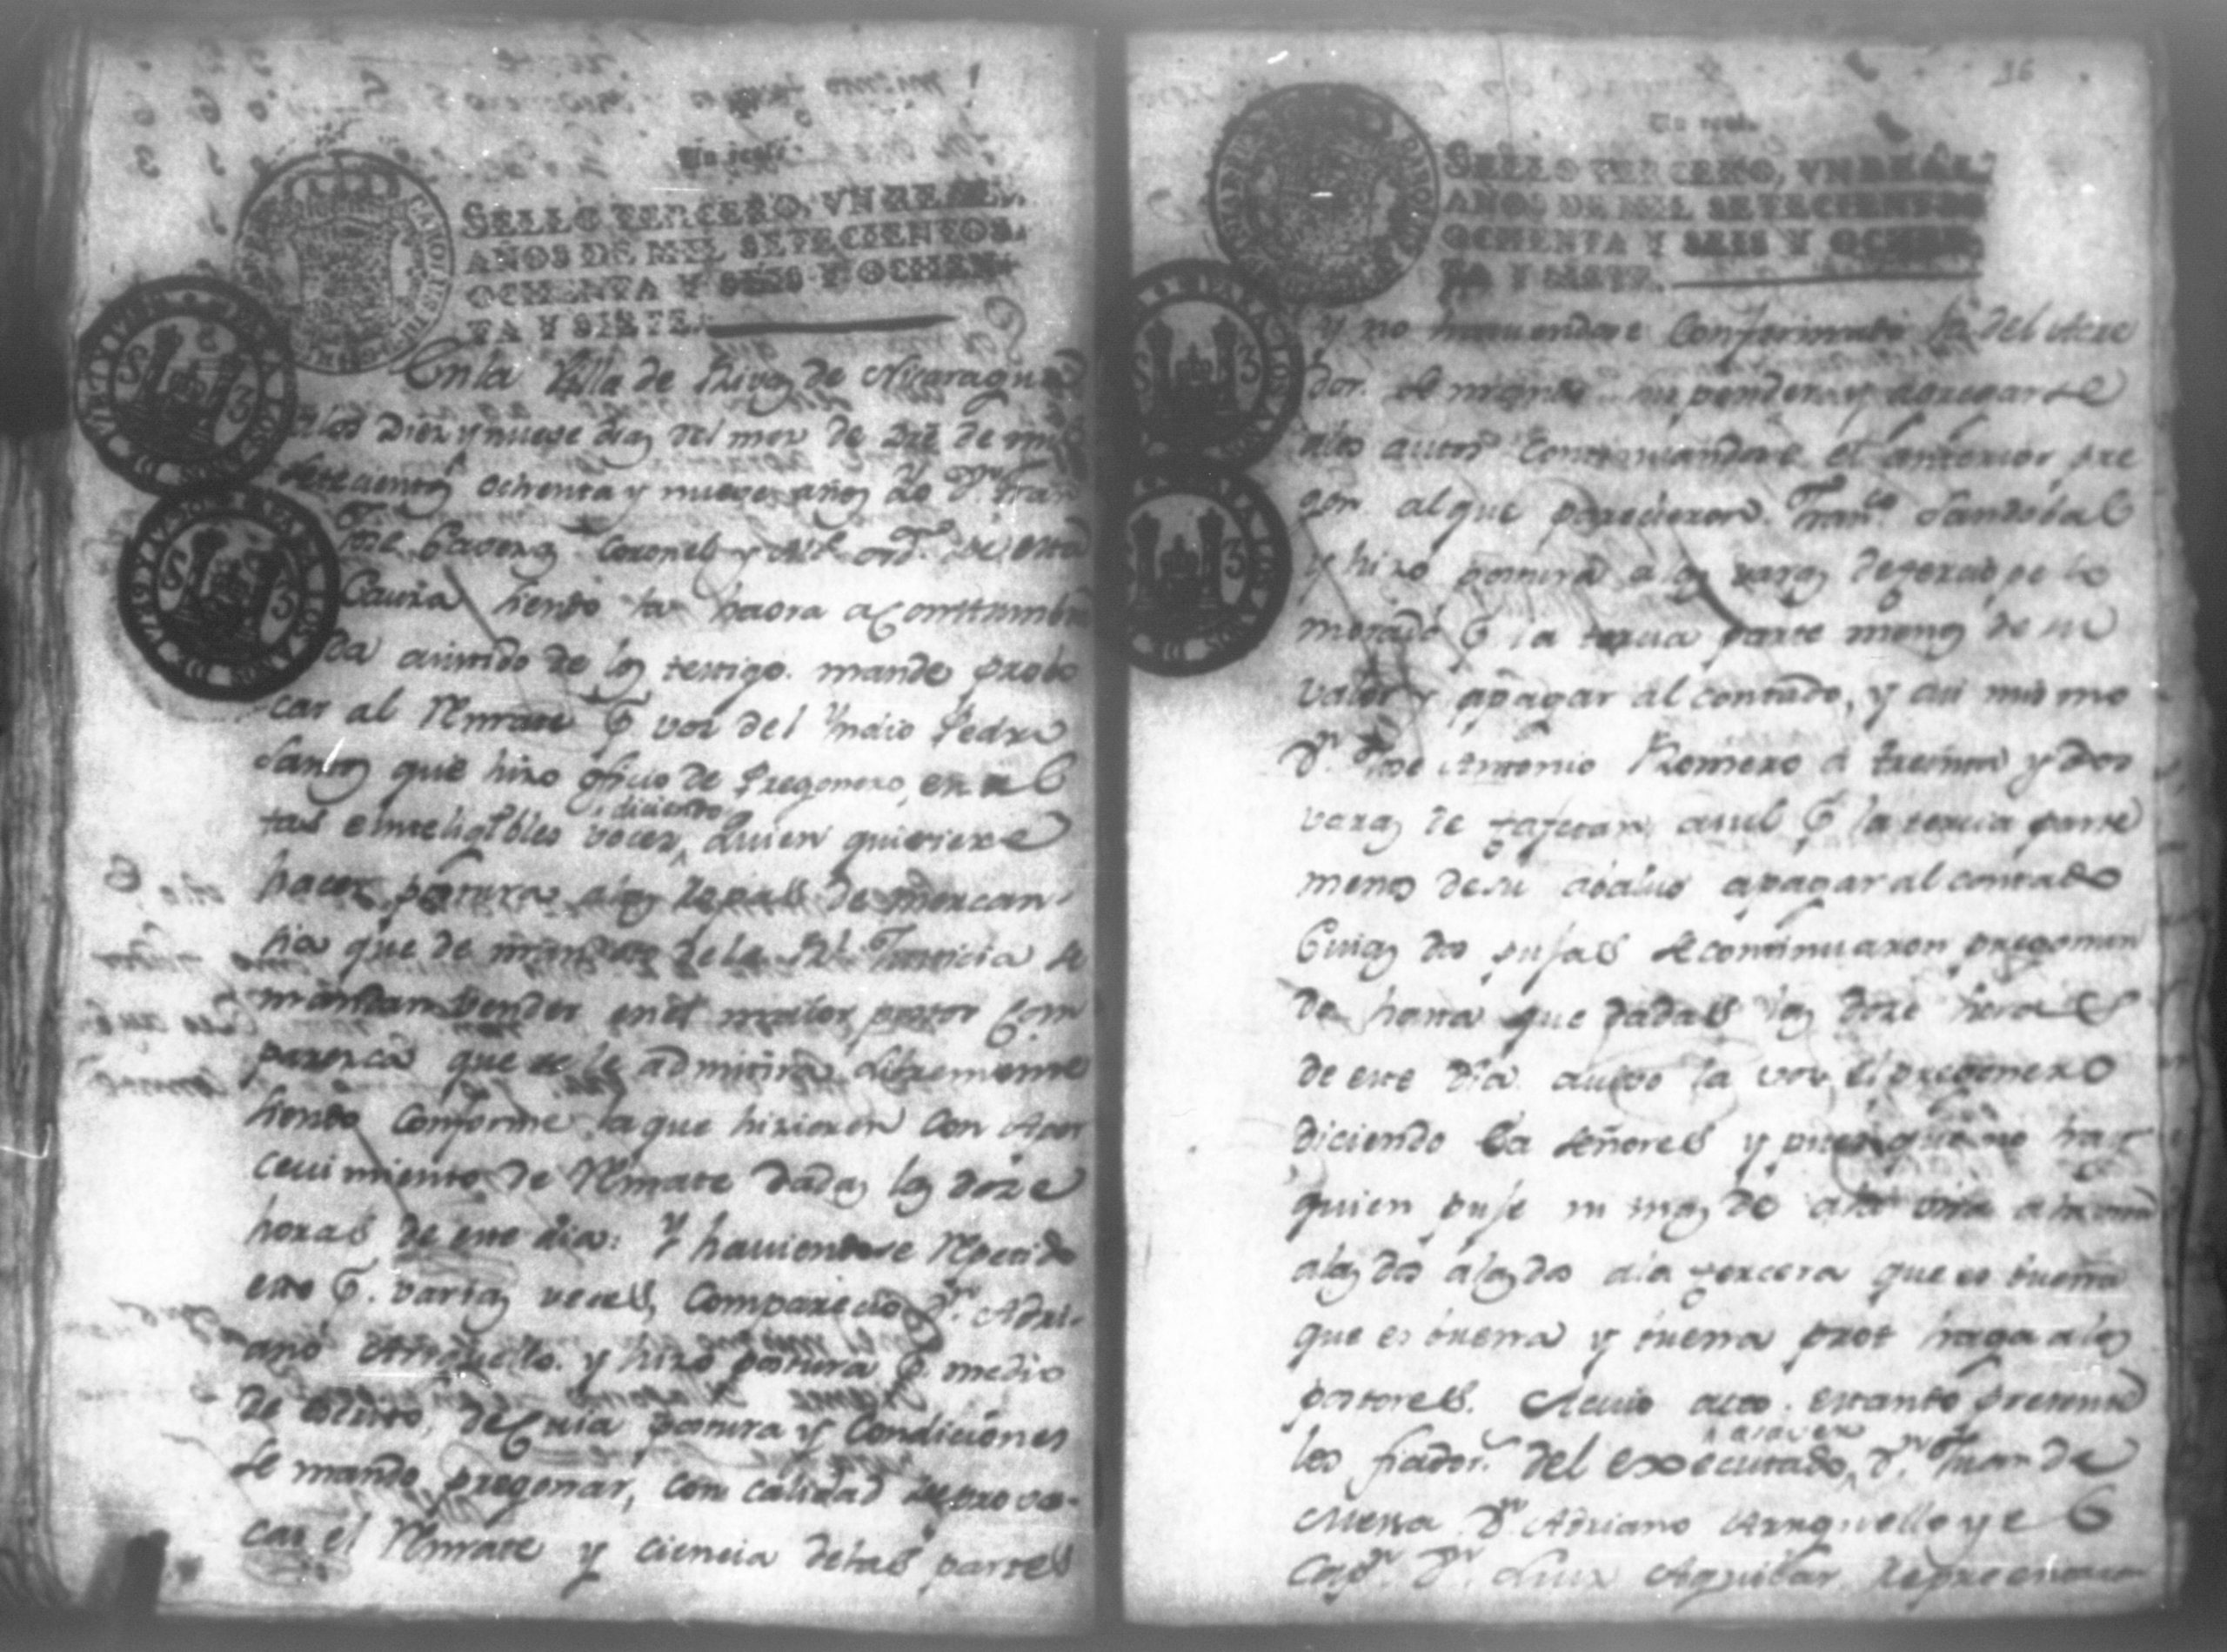 Un real.
SELLO TERCERO, VN REAL,
AÑOS DE MIL SETECIENTOS
OCHENTA Y SEIS Y OCHEN-
TA Y SIETE.
En la Villa de Rivas de Nicaragua
a los Diez y nueve dias del mes de Dre de mil
setecientos ochenta y nueve años Yo Dn Fran
Coronel y Alc ordo de esta
siendo la haora acosttumbra
da asistido de los testigos mande probo
car al Rmate P voz del Yndio Pedro
Santos que hizo oficio de Pregonero, en al
tas e inteligibles voces, diciendo Quien quisiere
hacer postura a los de mercan-
sia que de mandato de la Rl Justicia se
mandan bender en el maior postor Com
paresca que se le admitira libremente
siendo Conforme la que hizieren con Aper
cevimiento de Rmate dadas las doze
horas de este dia: Y haviendose Repetido
esto P. varias veces, Comparecio Dn. Adri-
ano Arguello. y hizo postura P. medio
de escrito, de Cuia postura y Condiciones
se mando pregonar, con calidad de provo-
car el Rmate y ciencia de las partes
16
Un real.
SELLO TERCERO, VN REAL,
AÑOS DE MIL SETECIENTOS
OCHENTA Y SEIS Y OCHEN-
TA Y SIETE.
y no haviendose Conformado la del Acre
dor. se mando suspender y agregarse
a los autos Continuandose el anterior pre
gon al que parecieron Franco Sandobal
y hizo postura a las varas de
morado P la tercia parte menos de su
valor y apagar al contado, y asi mismo
Dn Jose Antonio Romero a treinta y dos
varas de tafetan asul P la tercia parte
menos de su abaluo apagar al contado
Cuias dos pujas se continuaron pregonan
do hasta que dadas las doze horas
de este dia. la voz el pregonero
diciendo Ea señores y pues que no hay
quien puje ni mas de a la una a la una
a las dos a las dos a la tercera que es buena
que es buena y buena pro haga a los
postores. A cuio acto. estando presente
los fiadors. del executado, a saver Dn Juan de
Mesa Dn. Adriano Arguello y el
Capn. Dn. Luix Aguilar